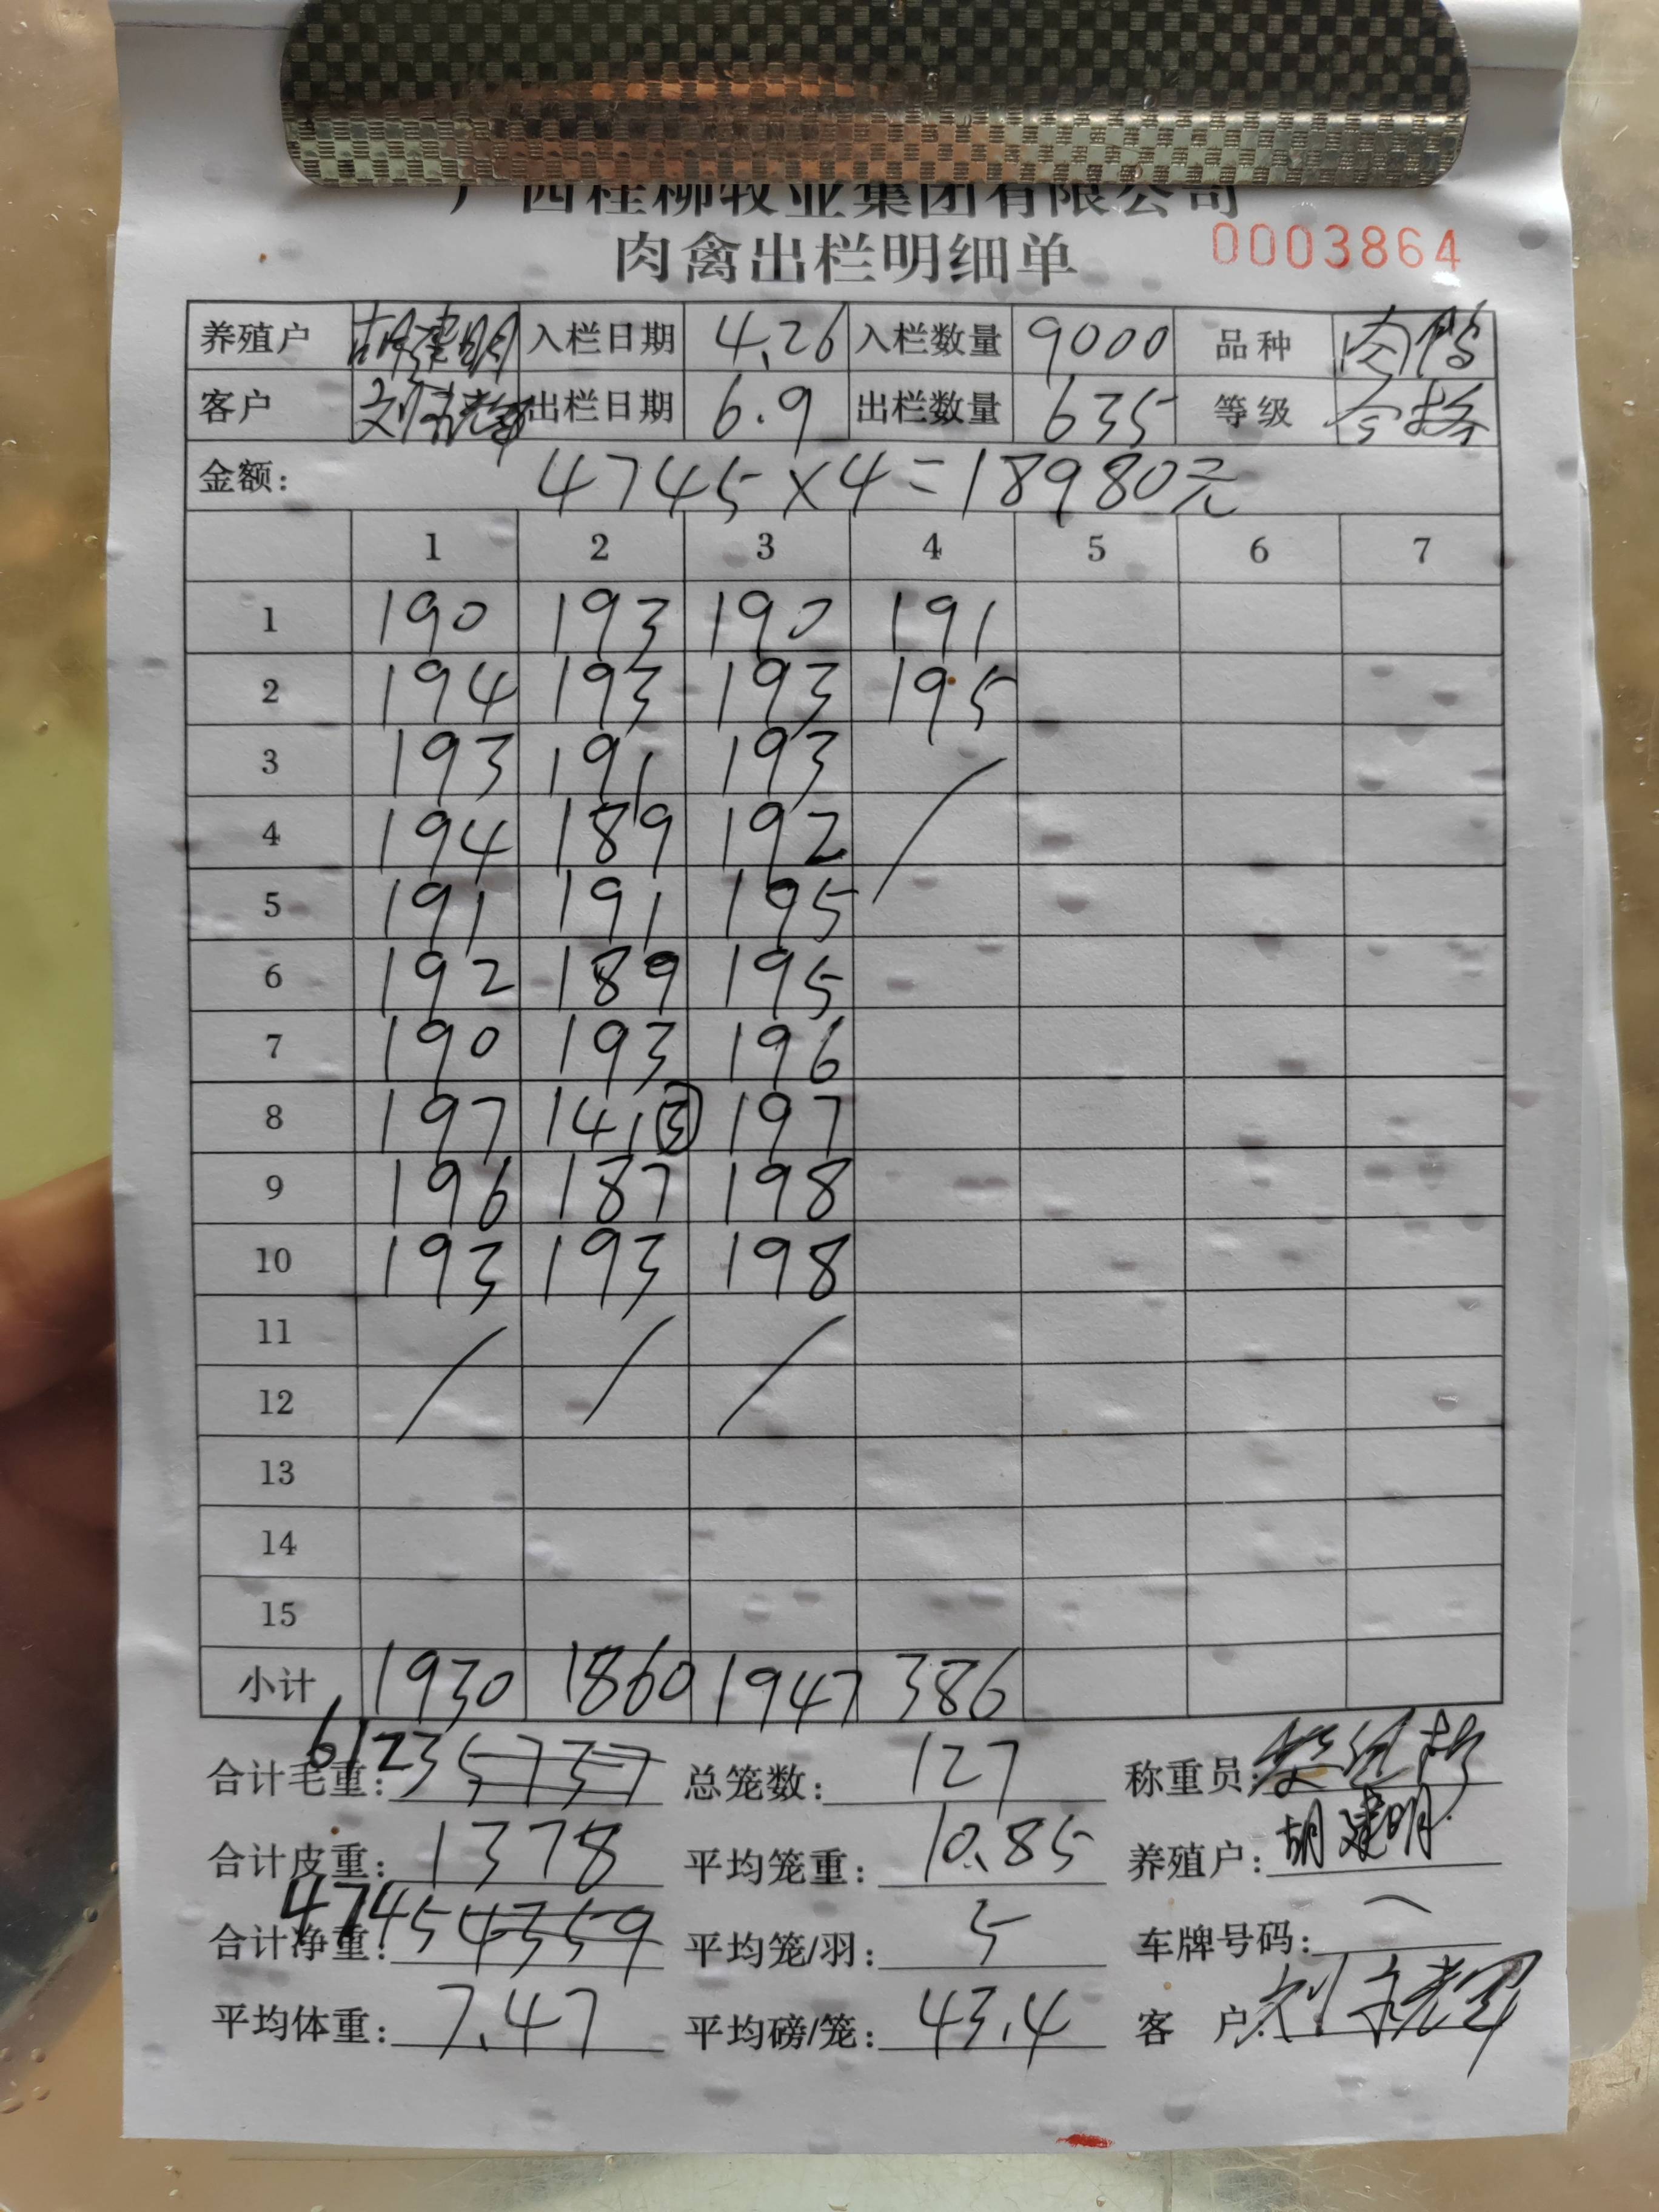 广西桂柳牧业集团有限公司
肉禽出栏明细单 0003864
养殖户 胡建明 入栏日期 4.26 入栏数量 9000 品种 肉鸭
客户 出栏日期 6.9 出栏数量 635 等级 合格
金额: 4745×4=18980元
1 2 3 4 5 6 7
1 190 193 190 191
2 194 193 193 195
3 193 191 193
4 194 189 192
5 191 191 195
6 192 189 195
7 190 193 196
8 197 141③ 197
9 196 187 198
10 193 193 198
11
12
13
14
15
小计 1930 1860 1947 386
合计毛重: 6123 5737 总笼数: 127 称重员:
合计皮重: 1378 平均笼重: 10.85 养殖户: 胡建明
合计净重: 4745 4359 平均笼/羽: 5 车牌号码:
平均体重: 7.47 平均磅/笼: 43.4 客 户: